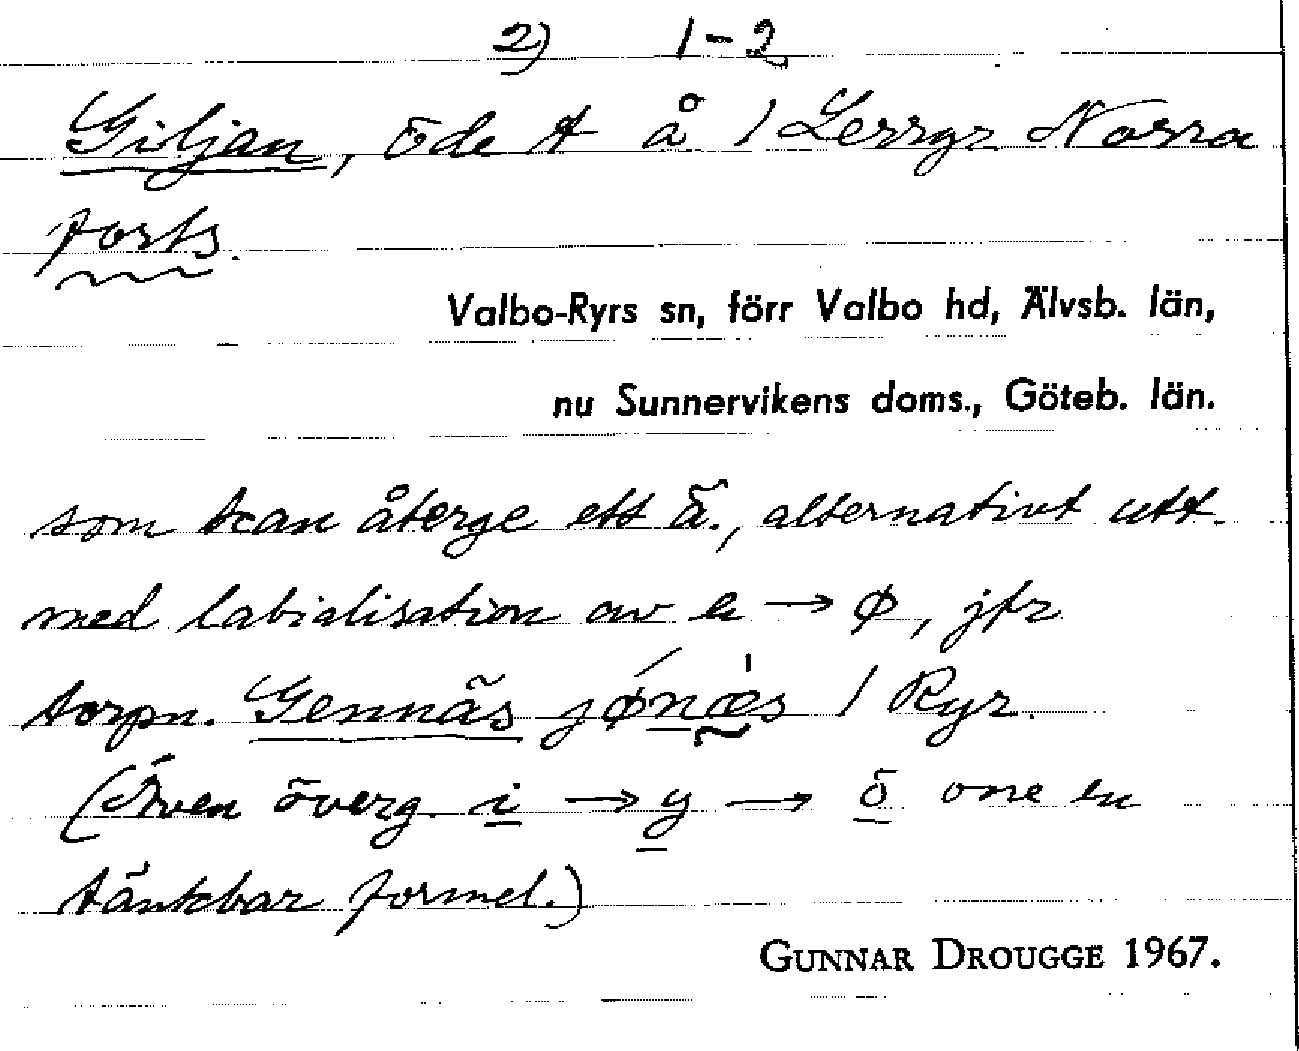 2) 1-2
Giljan, öde t å / Lerryr Norra
forts.
Valbo-Ryrs sn, förr Valbo hd, Älvsb. län,
nu Sunnervikens doms., Göteb. län.
som kan återge ett ä., alternativt utt.
med labialisation av e → ø, jfr
torpn. Gennäs jǿnæs / Ryr.
(Även överg. i → y → ö vore en
tänkbar formel.)
GUNNAR DROUGGE 1967.